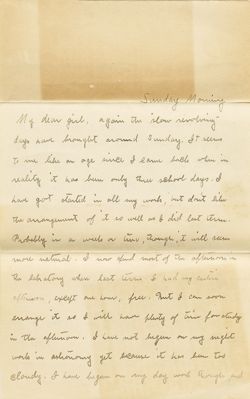 Sunday Morning
My dear girl, again the slow revolving
days have brought around Sunday. It seems
to me like an age since I came back when in
reality it has been only three school days. I
have got started in all my work, but don't like
the arrangement of it so well as I did last term.
Probably in a week or two, though, it will seem
more natural. I now spend most of the afternoon in
the laboratory when last term I had my entire
afternoon, except one hour, free. But I can soon
arrange it so I will have plenty of time for study
in the afternoon. I have not begun on my night
work in astronomy yet because it has been too
cloudy. I have begun on my day work though and